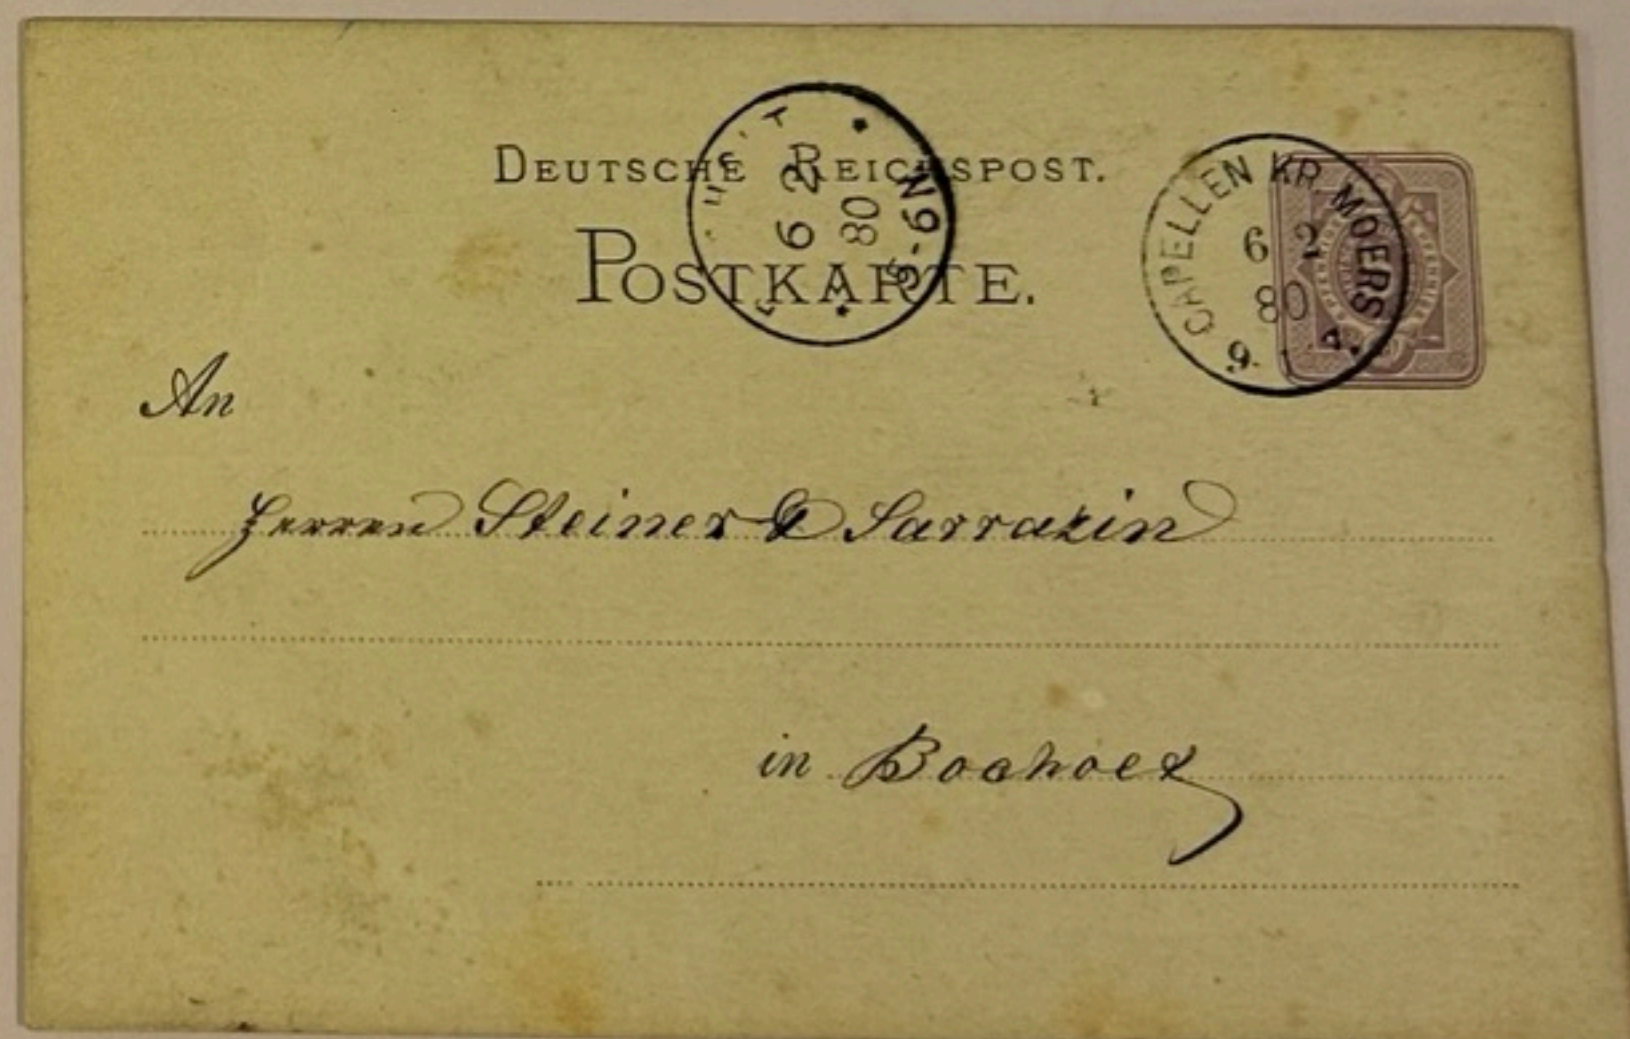 DEUTSCHE REICHSPOST.
POSTKARTE.
CAPELLEN KR. MOERS
6 2
80
9-
6 2
80
5-6N
An
Herren Steiner & Sarrazin
in Bocholt